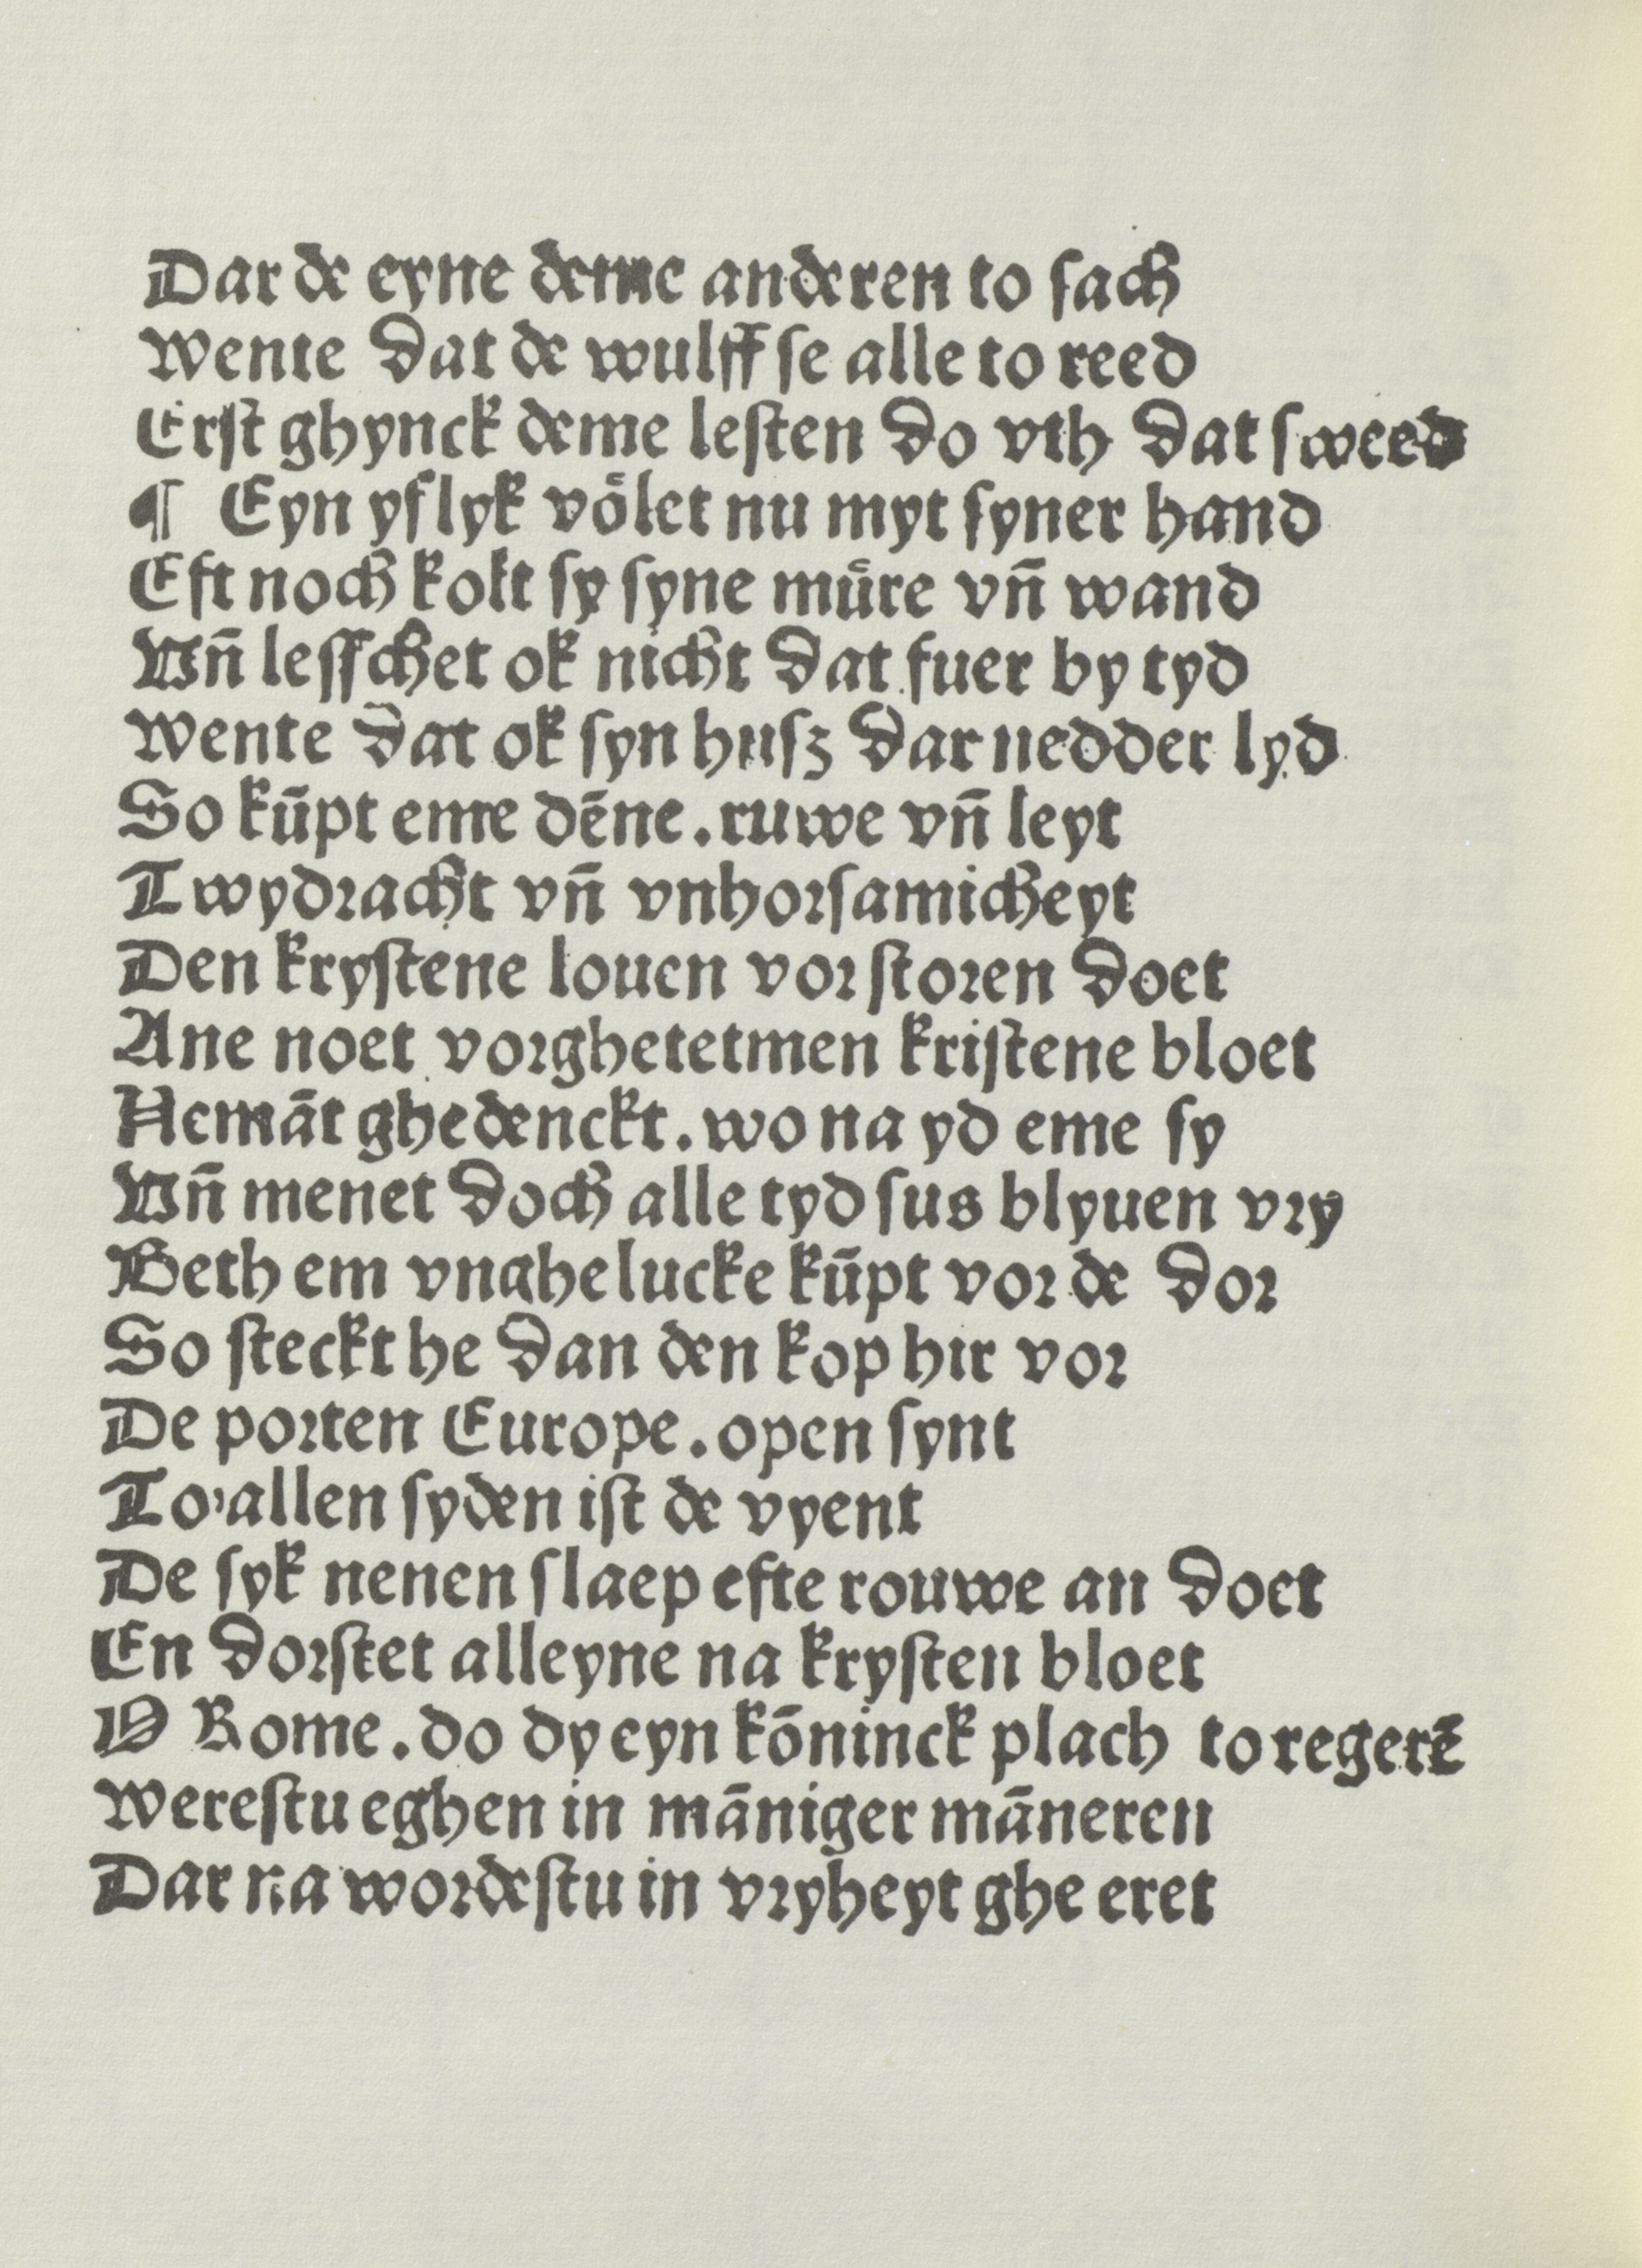 Dar de eyne deme anderen to ſach
Wente dat de wulff ſe alle to reed
Erſt ghynck deme leſten do vth dat ſweed
¶ Eyn yſlyk voͤlet nu myt ſyner hand
Eft noch kolt ſy ſyne muͤre vn̄ wand
Vn̄ leſſchet ok nicht dat fuer by tyd
Wente dat ok ſyn huſz dar nedder lyd
So kūpt eme dēne . ruwe vn̄ leyt
Twydracht vn̄ vnhorſamicheyt
Den kryſtene louen vorſtoren doet
Ane noet vorghetetmen kriſtene bloet
Nemāt ghedenckt . wo na yd eme ſy
Vn̄ menet doch alle tyd ſus blyuen vry
Beth em vnghelucke kūpt vor de dor
So ſteckt he dan den kop hir vor
De porten Europe . open ſynt
To allen ſyden iſt de vyent
De ſyk nenen ſlaep efte rouwe an doet
En dorſtet alleyne na kryſten bloet
O Rome . do dy eyn kōninck plach to regerē
Wereſtu eghen in māniger māneren
Dar na wordeſtu in vryheyt ghe eret